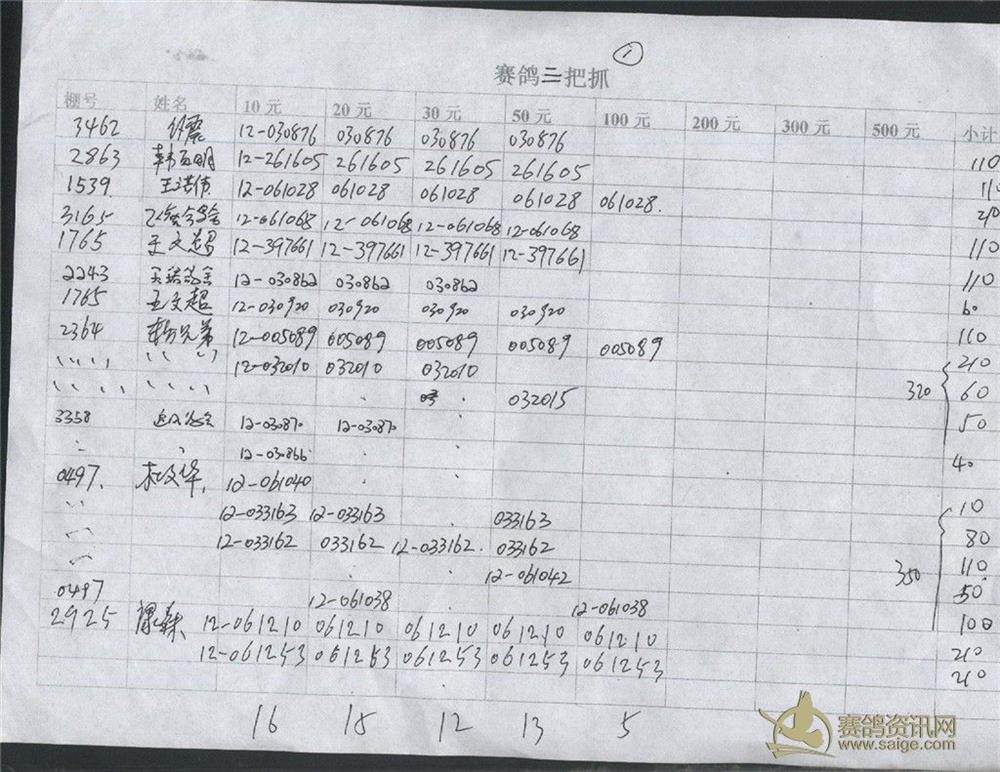 ①
赛鸽二把抓
棚号 姓名 10 元 20 元 30 元 50 元 100 元 200 元 300 元 500 元 小计
3462 12-030876 030876 030876 030876
2863 12-261605 261605 261605 261605 110
1539 12-061028 061028 061028 061028 061028. 110
3165 12-061068 12-061068 12-061068 12-061068 210
1765 王文超 12-397661 12-397661 12-397661 12-397661 110
2243 12-030862 030862 030862 110
1765 王文超 12-030920 030920 030920 030920 60
2364 兄弟 12-005089 005089 005089 005089 005089 110
〃 〃 12-032010 032010 032010 210
〃 〃 032015 320 60
3358 12-03087 12-03087 50
12-030866 40
0497. 杜文华. 12-061040
〃 12-033163 12-033163 033163 10
〃 12-033162 033162 12-033162. 033162 80
〃 12-061042 350 110
0497 12-061038 12-061038 50
2925 12-061210 061210 061210 061210 061210 100
12-061253 061253 061253 061253 061253 210
210
16 15 12 13 5
赛鸽资讯网
www.saige.com